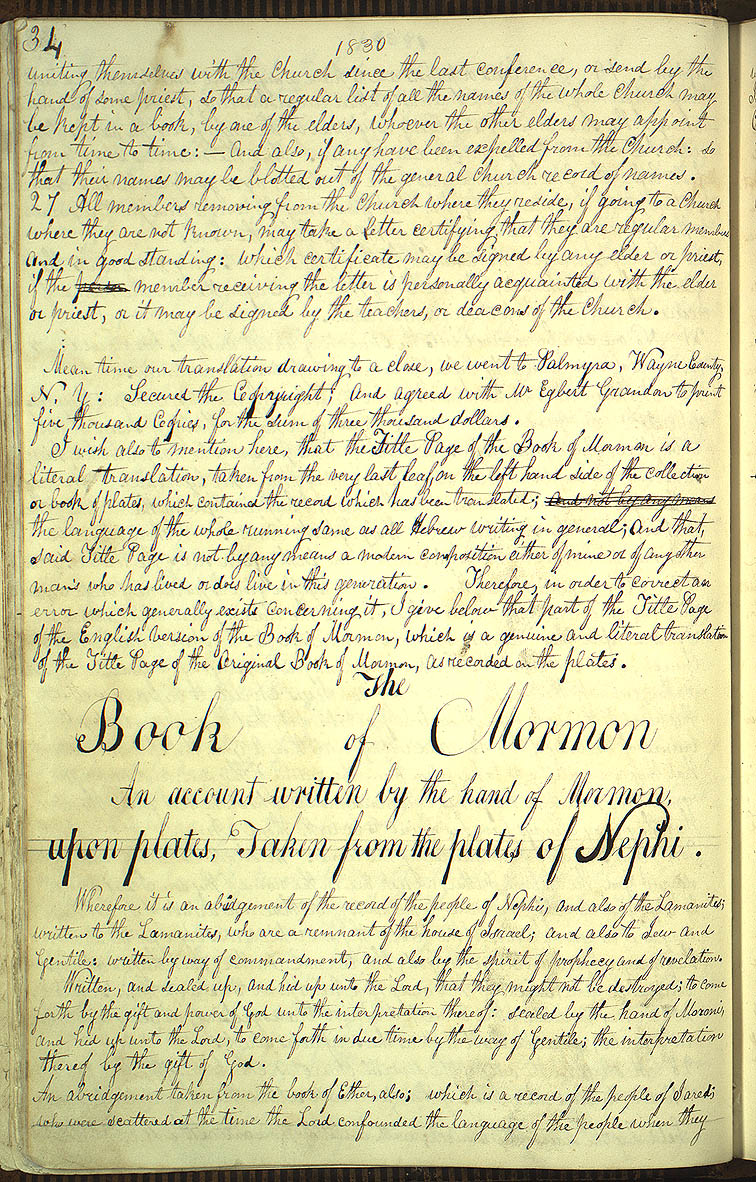 34
1830
uniting themselves with the Church since the last conference, or send by the
hand of some priest, so that a regular list of all the names of the whole Church may
be kept in a book, by one of the elders, whoever the other elders may appoint
from time to time: — And also, if any have been expelled from the Church: so
that their names may be blotted out of the general Church record of names.
27 All members removing from the Church where they reside, if going to a Church
where they are not known, may take a letter certifying that they are regular members
and in good standing: which certificate may be signed by any elder or priest,
if the member receiving the letter is personally acquainted with the elder
or priest, or it may be signed by the teachers, or deacons of the Church.
Mean time our translation drawing to a close, we went to Palmyra, Wayne County,
N. Y: Secured the Copyright; and agreed with Mr Egbert Grandon to print
five thousand Copies, for the sum of three thousand dollars.
I wish also to mention here, that the Title Page of the Book of Mormon is a
literal translation, taken from the very last leaf, on the left hand side of the collection
or book of plates, which contained the record which has been translated; and not by any means
the language of the whole running same as all Hebrew writing in general; and that,
said Title Page is not by any means a modern composition either of mine or of any other
man's who has lived or does live in this generation. Therefore, in order to correct an
error which generally exists concerning it, I give below that part of the Title Page
of the English Version of the Book of Mormon, which is a genuine and literal translation
of the Title Page of the Original Book of Mormon, as recorded on the plates.
The
Book of Mormon
An account written by the hand of Mormon,
upon plates, Taken from the plates of Nephi.
Wherefore it is an abridgement of the record of the people of Nephi, and also of the Lamanites;
written to the Lamanites, who are a remnant of the house of Israel; and also to Jew and
Gentile: written by way of commandment, and also by the spirit of prophecy and of revelation.
Written, and sealed up, and hid up unto the Lord, that they might not be destroyed; to come
forth by the gift and power of God unto the interpretation thereof: sealed by the hand of Moroni,
and hid up unto the Lord, to come forth in due time by the way of Gentile; the interpretation
thereof by the gift of God.
An abridgement taken from the book of Ether, also; which is a record of the people of Jared;
who were scattered at the time the Lord confounded the language of the people when they